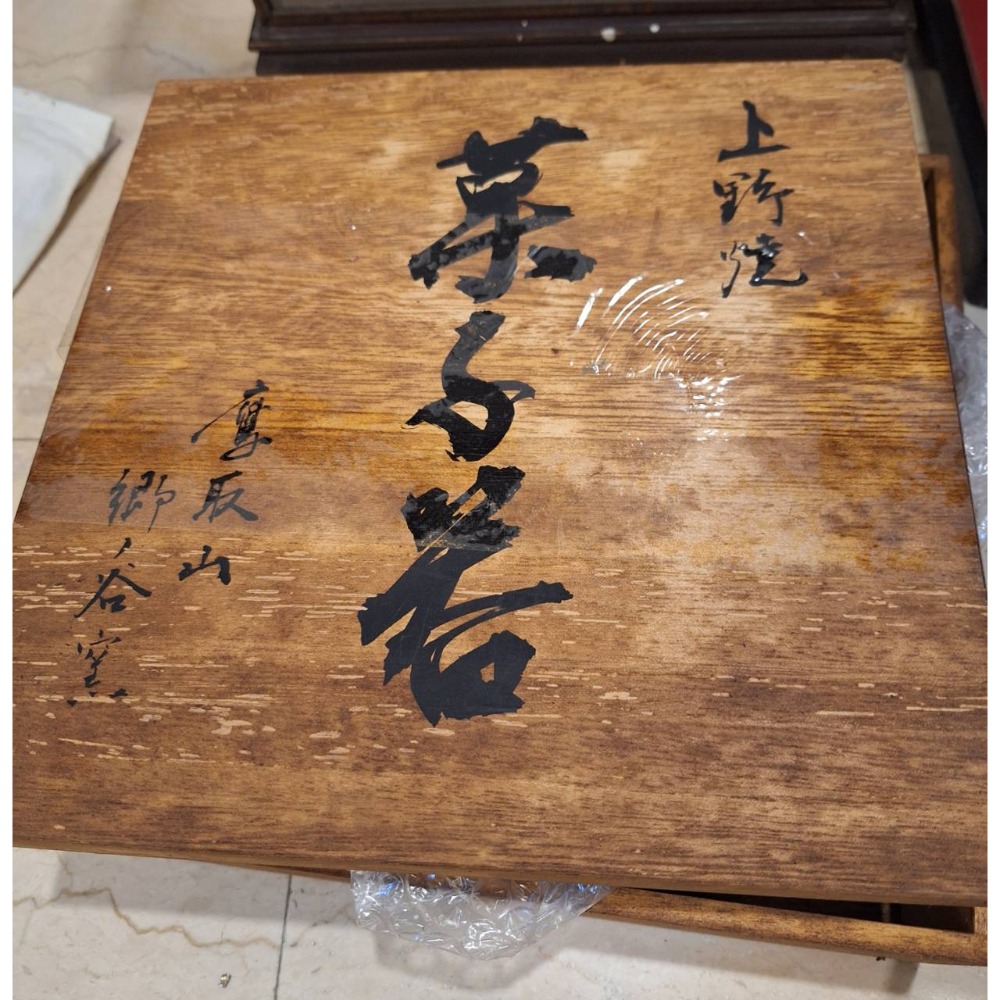 上野焼
菓子器
鷹取山
郷ノ谷窯